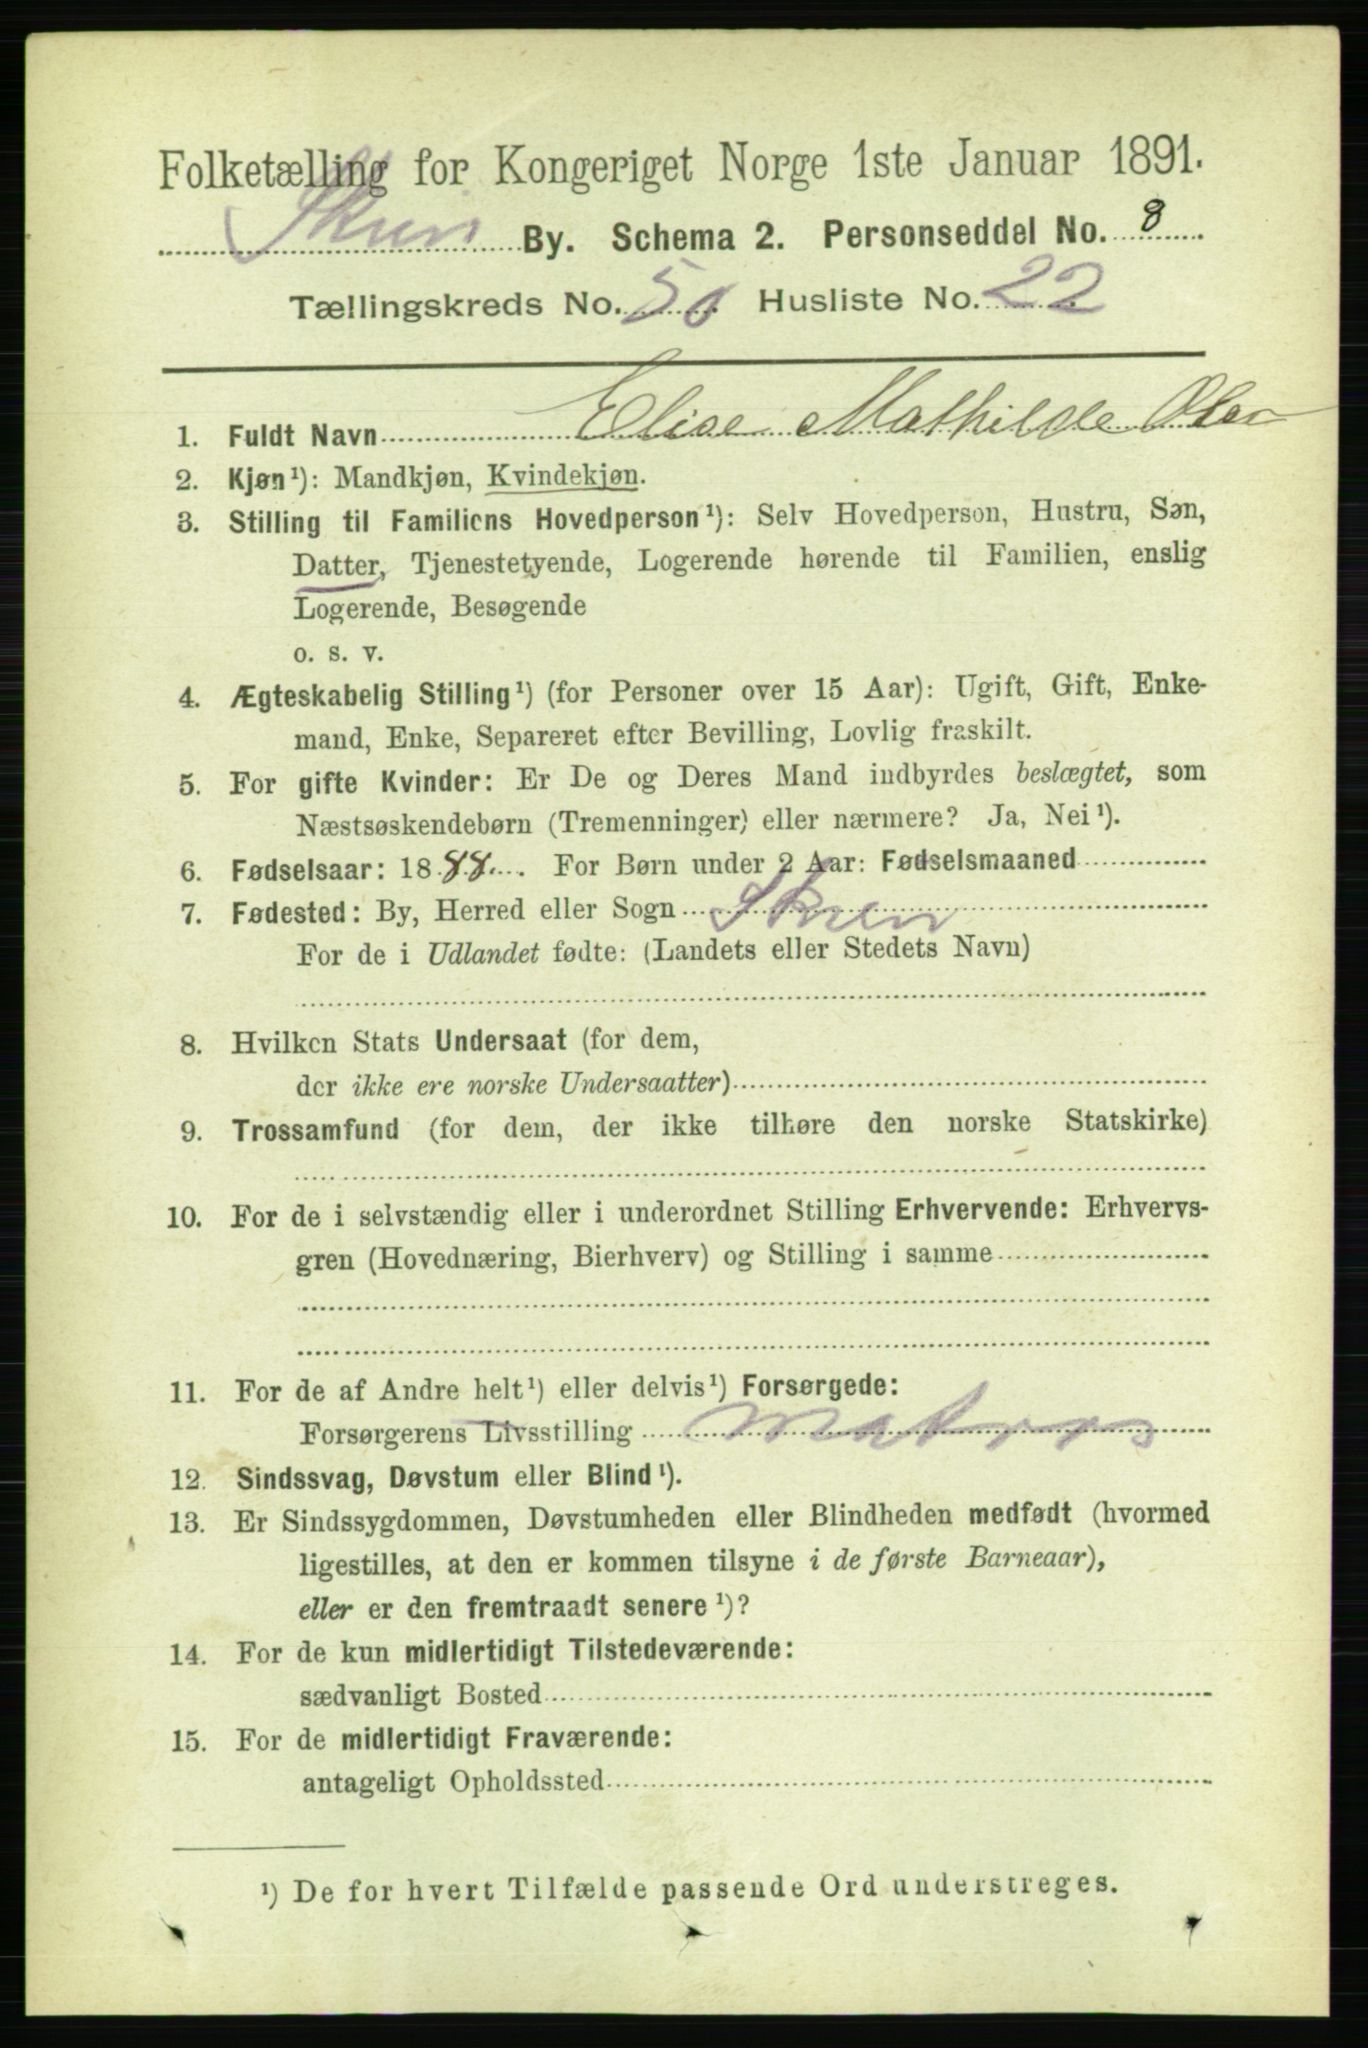 Folketælling for Kongeriget Norge 1ste Januar 1891.
Skien By. Schema 2. Personseddel No. 8
Tællingskreds No. Husliste No. 22
1. Fuldt Navn Elise Mathilde
2. Kjøn¹): Mandkjøn, Kvindekjøn.
3. Stilling til Familiens Hovedperson¹): Selv Hovedperson, Hustru, Søn,
Datter, Tjenestetyende, Logerende hørende til Familien, enslig
Logerende, Besøgende
o. s. v.
4. Ægteskabelig Stilling¹) (for Personer over 15 Aar): Ugift, Gift, Enke-
mand, Enke, Separeret efter Bevilling, Lovlig fraskilt.
5. For gifte Kvinder: Er De og Deres Mand indbyrdes beslægtet, som
Næstsøskendebørn (Tremenninger) eller nærmere? Ja, Nei¹).
6. Fødselsaar: 1888. For Børn under 2 Aar: Fødselsmaaned
7. Fødested: By, Herred eller Sogn Skien
For de i Udlandet fødte: (Landets eller Stedets Navn)
8. Hvilken Stats Undersaat (for dem,
der ikke ere norske Undersaatter)
9. Trossamfund (for dem, der ikke tilhøre den norske Statskirke)
10. For de i selvstændig eller i underordnet Stilling Erhvervende: Erhvervs-
gren (Hovednæring, Bierhverv) og Stilling i samme
11. For de af Andre helt¹) eller delvis¹) Forsørgede:
Forsørgerens Livsstilling Matros
12. Sindssvag, Døvstum eller Blind¹).
13. Er Sindssygdommen, Døvstumheden eller Blindheden medfødt (hvormed
ligestilles, at den er kommen tilsyne i de første Barneaar),
eller er den fremtraadt senere¹)?
14. For de kun midlertidigt Tilstedeværende:
sædvanligt Bosted
15. For de midlertidigt Fraværende:
antageligt Opholdssted
¹) De for hvert Tilfælde passende Ord understreges.